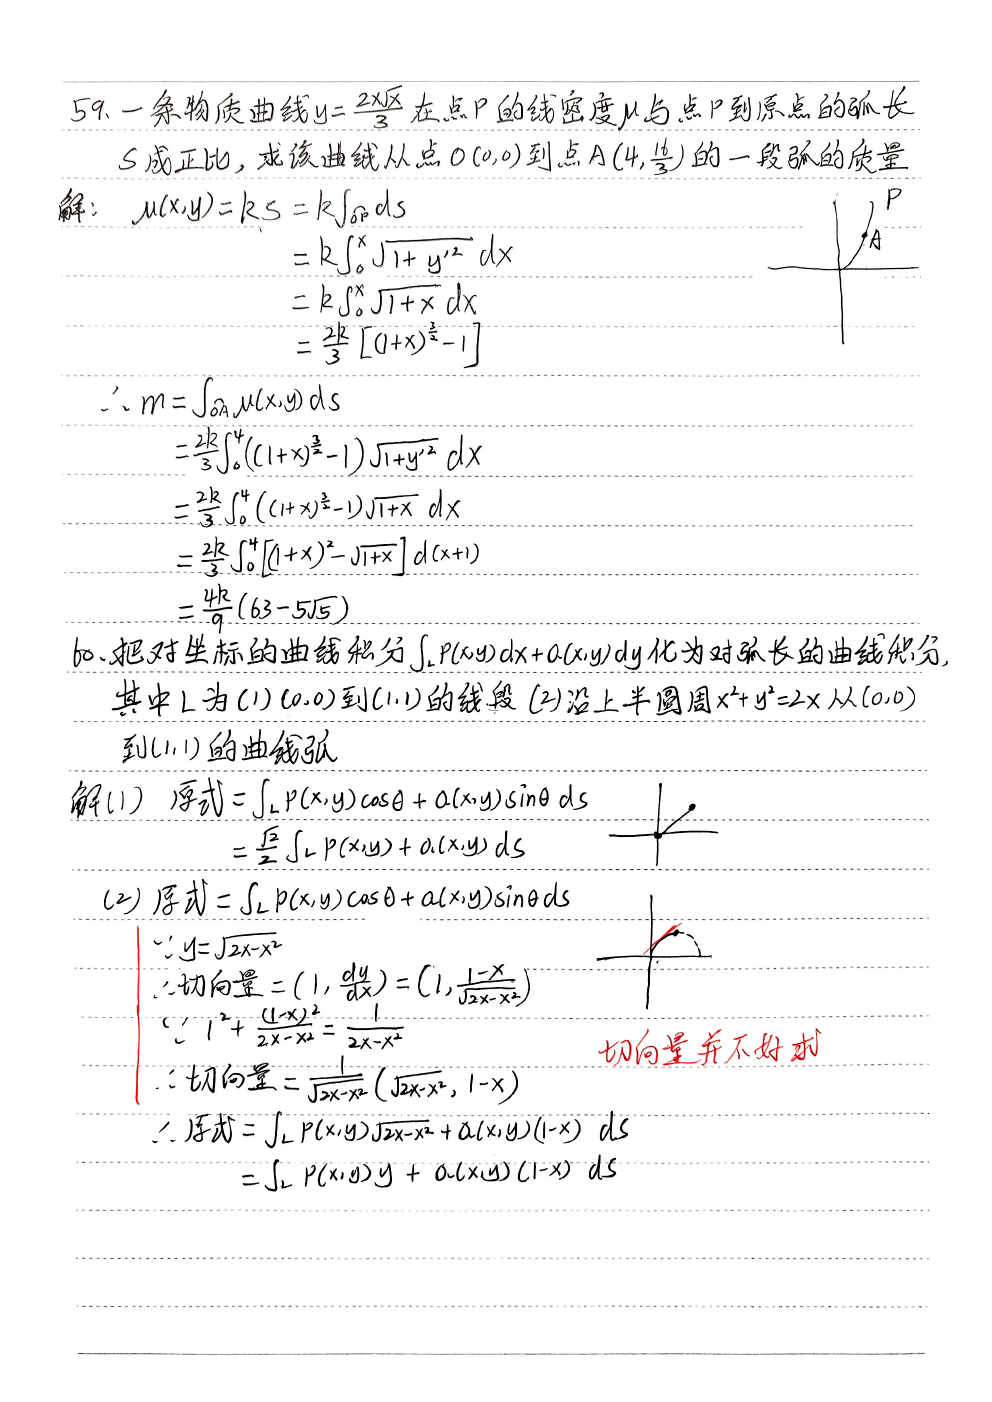 59、一条物质曲线y=2x√x/3 在点P的线密度μ与点P到原点的弧长
S成正比，求该曲线从点O(0,0)到点A(4,16/3)的一段弧的质量
解：μ(x,y)=kS=k∫_OP ds
=k∫₀ˣ√(1+y'²) dx
=k∫₀ˣ√(1+x) dx
=2k/3[(1+x)^(3/2)-1]
P
A
∴m=∫_OA μ(x,y)ds
=2k/3∫₀⁴((1+x)^(3/2)-1)√(1+y'²) dx
=2k/3∫₀⁴((1+x)^(3/2)-1)√(1+x) dx
=2k/3∫₀⁴[(1+x)²-√(1+x)]d(x+1)
=4k/9(63-5√5)
60、把对坐标的曲线积分∫_L P(x,y)dx+Q(x,y)dy化为对弧长的曲线积分，
其中L为(1)(0,0)到(1,1)的线段(2)沿上半圆周x²+y²=2x从(0,0)
到(1,1)的曲线弧
解(1) 原式=∫_L P(x,y)cosθ+Q(x,y)sinθ ds
=√2/2∫_L P(x,y)+Q(x,y) ds
(2)原式=∫_L P(x,y)cosθ+Q(x,y)sinθds
∵y=√(2x-x²)
∴切向量=(1,dy/dx)=(1,(1-x)/√(2x-x²))
∵1²+(1-x)²/(2x-x²)=1/(2x-x²)
切向量并不好求
∴切向量=1/√(2x-x²)(√(2x-x²),1-x)
∴原式=∫_L P(x,y)√(2x-x²)+Q(x,y)(1-x) ds
=∫_L P(x,y)y+Q(x,y)(1-x) ds